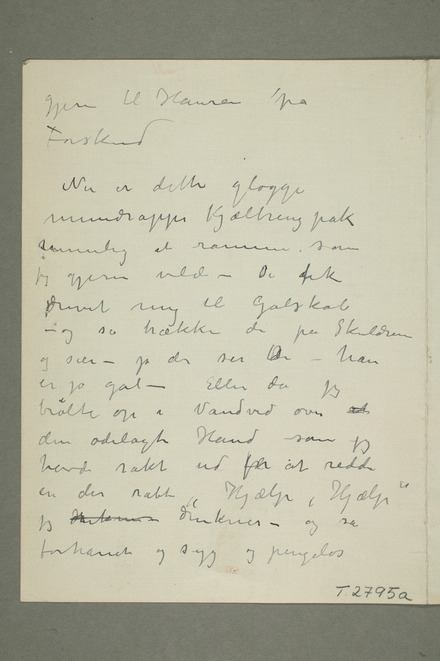 gjern til Hansen på
Forskud
Nu er dette gløgge
mundrappe Kjæltring pak
umulig at ramme som
jeg gjerne vilde – De fik
drevet mig til Galskab
– og så trækker de på Skuldren
og sier – ja der ser De – han
er jo gal – Eller da jeg
brølte op i Vandvid over
den ødelagte Hånd som jeg
havde rakt ud for at redde
en der råbte „Hjælp, Hjælp"
jeg drukner – og så
forhånet og syg og pengeløs
T 2795a